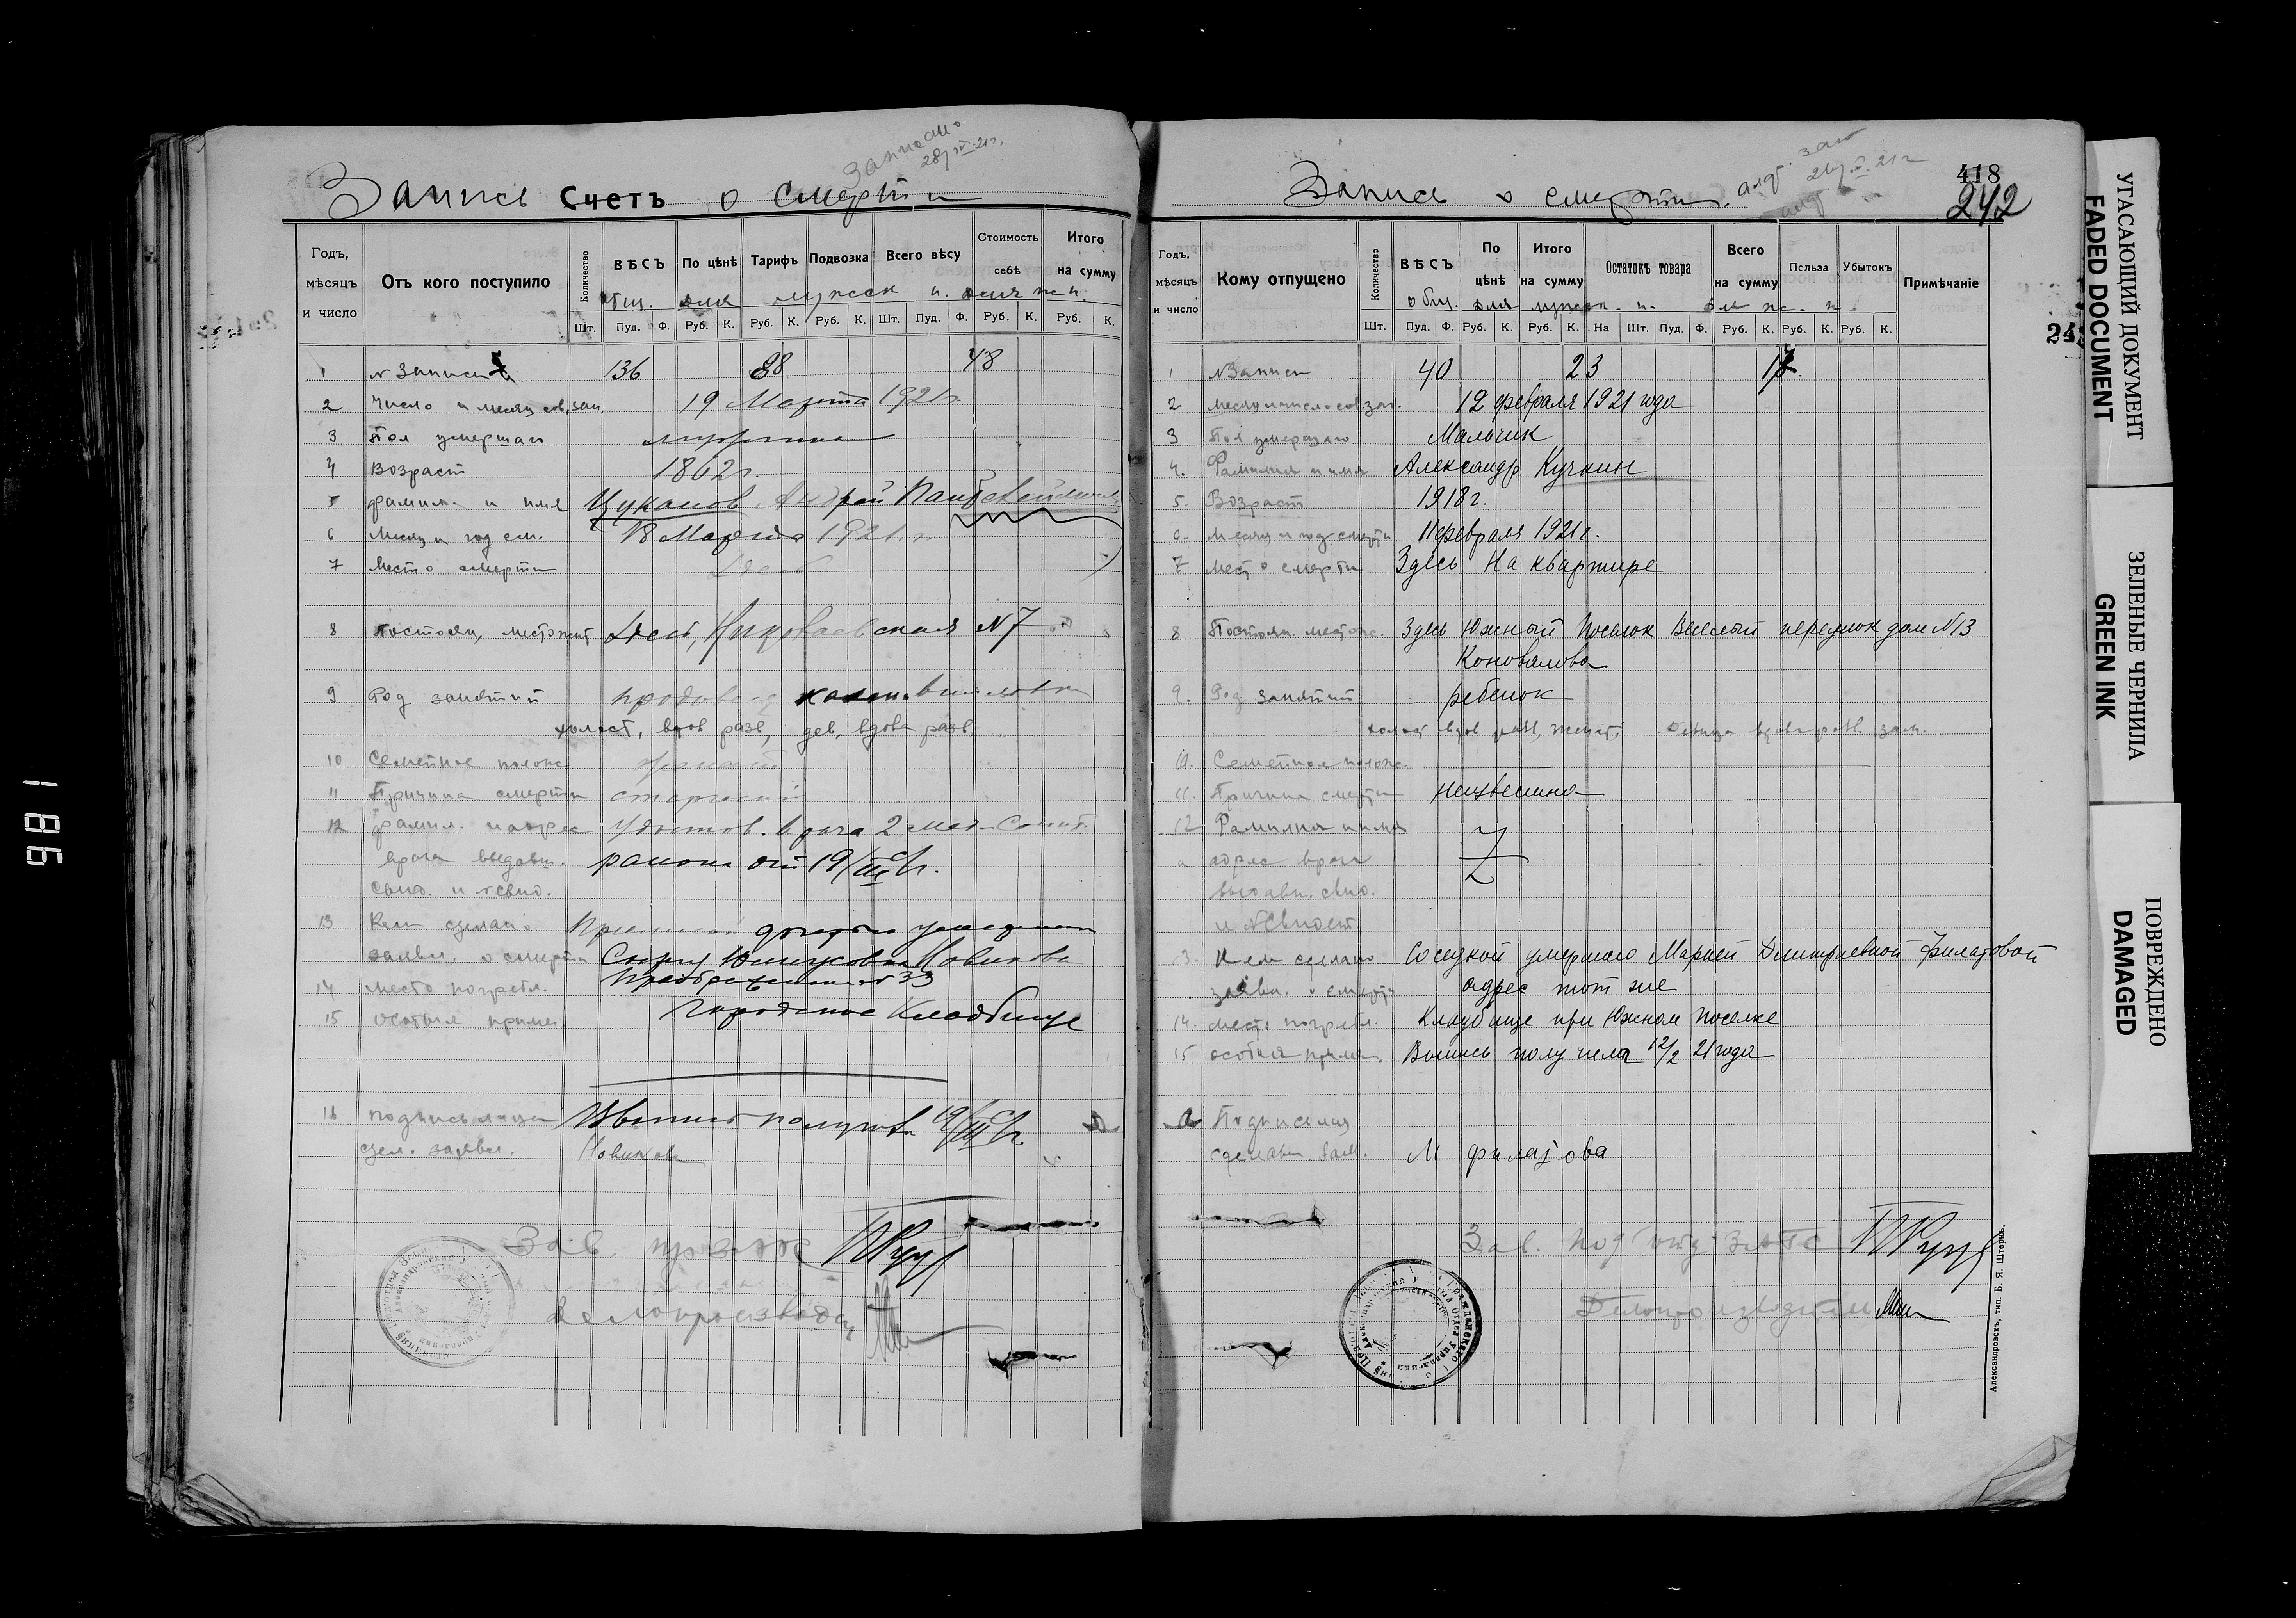 Записано
28/IV-21г.
Запись Счетъ о смерти
Годъ, мѣсяцъ и число
Отъ кого поступило
Количество
ВѢСЪ
По цѣнѣ
Тарифъ
Подвозка
Всего вѣсу
Стоимость себѣ
Итого на сумму
общ. для мужск п. для ж п.
Шт. Пуд. Ф. Руб. К. Руб. К. Руб. К. Шт. Пуд. Ф. Руб. К. Руб. К.
1 № записи 136 88 48
2 Число и месяц сов. зап. 19 Марта 1921г
3 Пол умершаго мужчина
4 Возраст 1862г
5 фамил. и имя Цуканов Андрей
6 Месяц и год см. 18 Марта 1921г.
7 Место смерти Здесь
8 Постоян. мест. жит Здесь, Николаевская №7
9 Род занятий
холост, вдов разв, дев, вдова разв.
10 Семейное полож
11 Причина смерти старость
12 фамил. и адрес Удостов. врача 2 мед-Санит.
врача выдавш. района от 19/III с/г.
свид. и № свид.
13 Кем сделано
заявл. о смерти Новикова
14 место погребл. № 33
15 особыя примеч. Городское Кладбище
16 подпись лица получила 19/III с/г
сдел. заявл. Новикова
Зав.
Делопроизвод
418
242
Запись о смерти.
Годъ, мѣсяцъ и число
Кому отпущено
Количество
ВѢСЪ
По цѣнѣ
Итого на сумму
Остатокъ товара
Всего на сумму
Польза
Убытокъ
Примѣчаніе
общ. для мужск. п. для ж. п.
Шт. Пуд. Ф. Руб. К. Руб. К. На Шт. Пуд. Ф. Руб. К. Руб. К. Руб. К.
1 № Записи 40 23 17.
2 месяц и число сов. зап. 12 февраля 1921 года
3 Пол умершаго Мальчик
4. Фамилия и имя Александр Кучкин
5. Возраст 1918 г.
6. Месяц и год смерти 11 февраля 1921 г.
7 Место смерти Здесь На квартире
8 Постоян. мест. ж. Здесь Южный Поселок Веселый переулок дом №13
Коновалова
9. Род занятий ребенок
холост вдов разв, женат, девица вдова разв. зам.
10. Семейное полож.
11. Причина смерти неизвестна
12 Фамилия имя
и адрес врача
выдавш. свид.
и № Свидет.
13. Кем сделано Соседкой умершаго Марией Дмитриевной Филатовой
заявл. о смерти адрес тот же
14. место погребл. Кладбище при Южном поселке
15 особыя примеч. Выпись получила 12/2 21 года
Подпись лица
сделавш. заяв. М Филатова
Зав. Под отд ЗАГС
Делопроизводитель
Александровскъ, тип. Б. Я. Штерна.
УГАСАЮЩИЙ ДОКУМЕНТ
FADED DOCUMENT
ЗЕЛЕНЫЕ ЧЕРНИЛА
GREEN INK
ПОВРЕЖДЕНО
DAMAGED
186